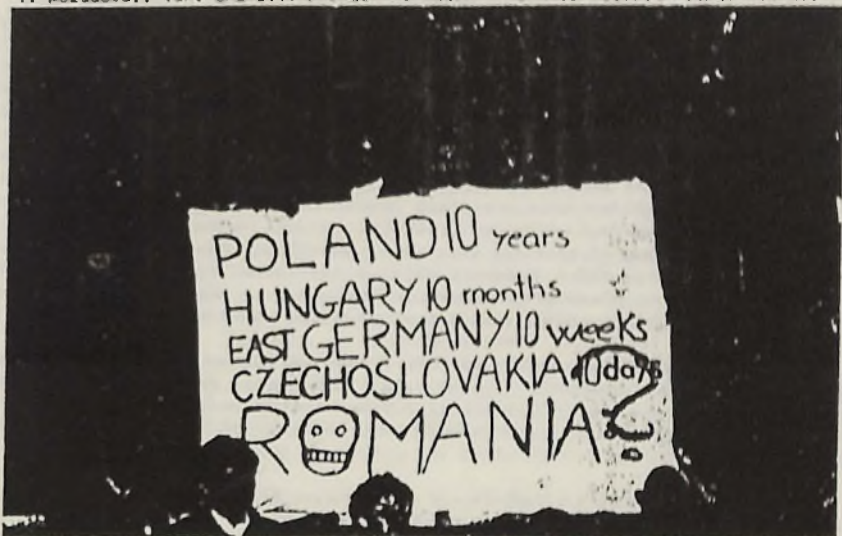 POLAND 10 years
HUNGARY 10 months
EAST GERMANY 10 weeks
CZECHOSLOVAKIA 10 days
ROMANIA ?